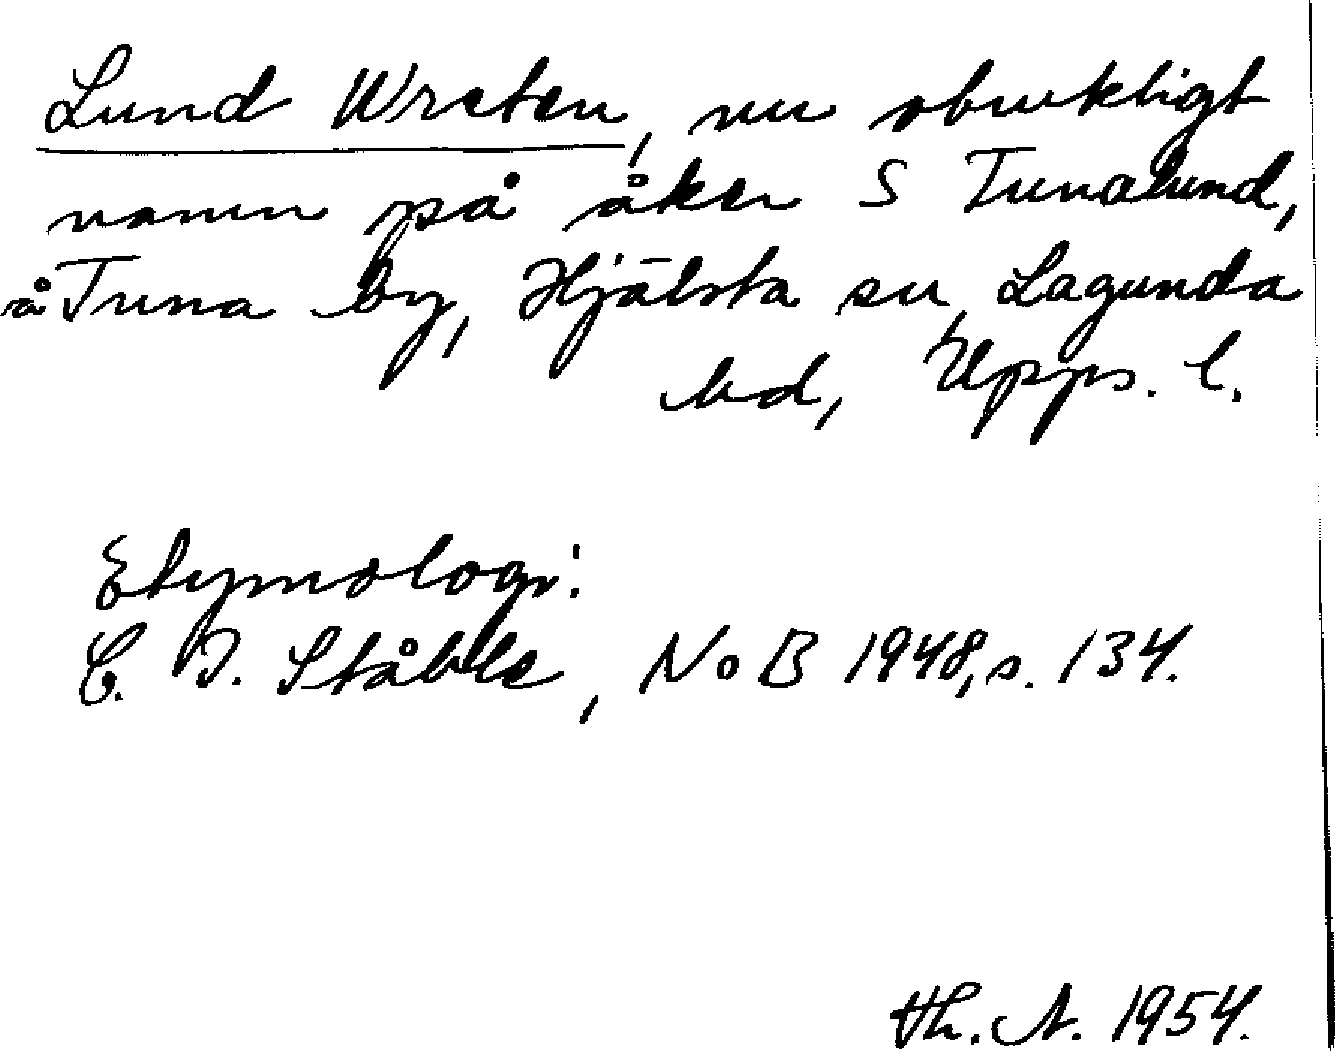 Lund Wreten, nu obrukligt
namn på åker S Tunalund,
å Tuna by, Hjälsta sn, Lagunda
hd, Upps. l.
Etymologi:
C. I. Ståhle, NoB 1948, s. 134.
Th. A. 1954.